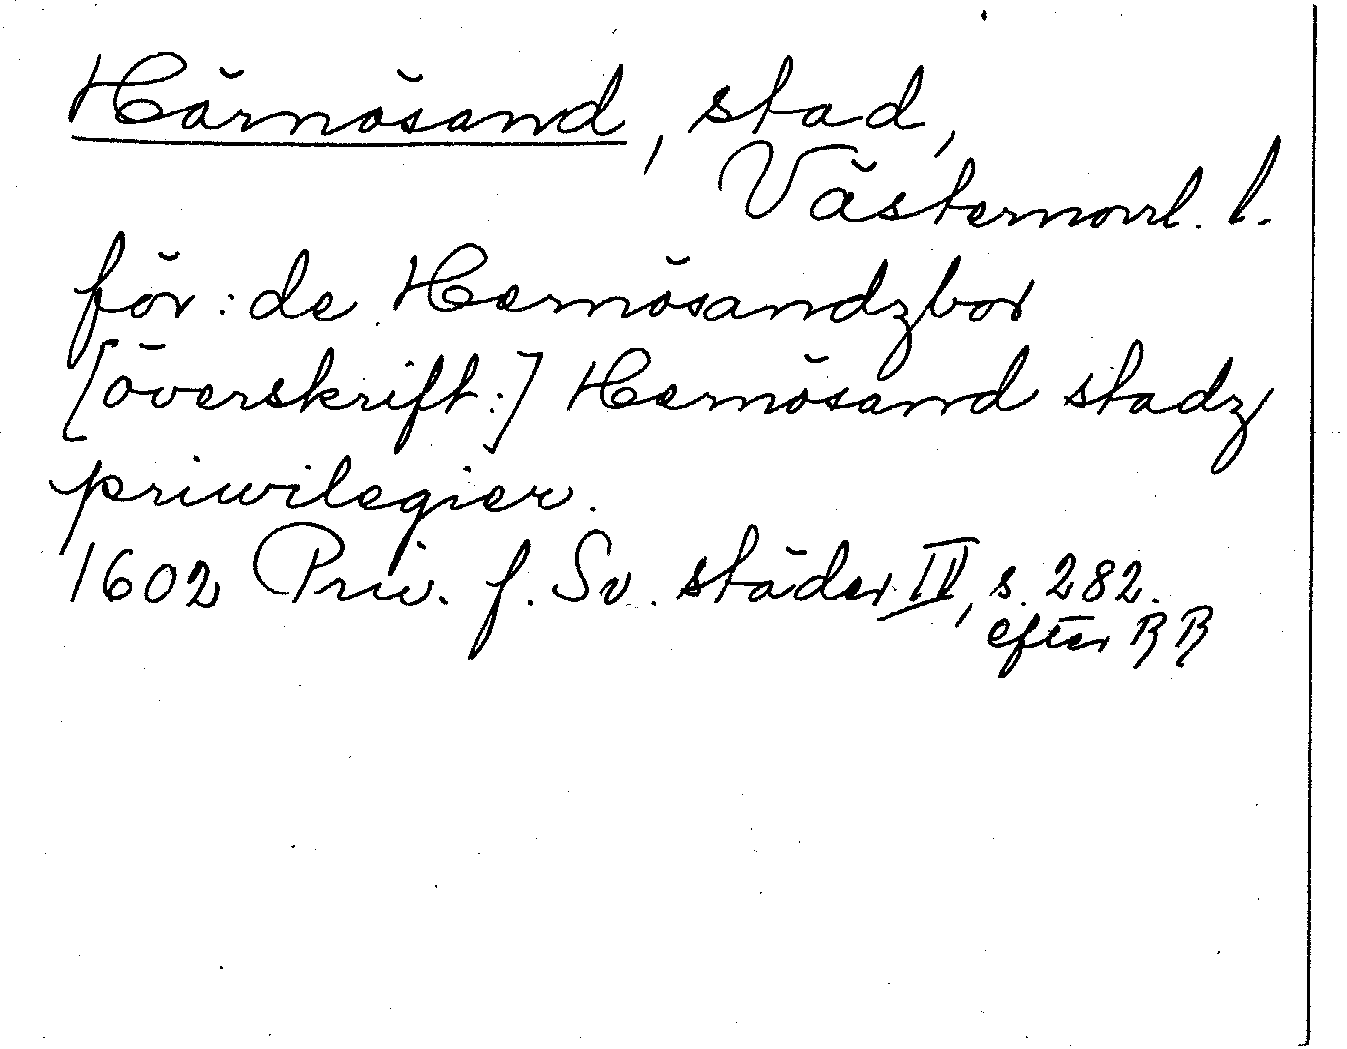 Härnösand, stad,
Västernorrl. l.
för: de Hernösandzbor
[överskrift:] Hernösand stadz
priwilegier.
1602 Priv. f. Sv. städer II, s. 282.
efter RR